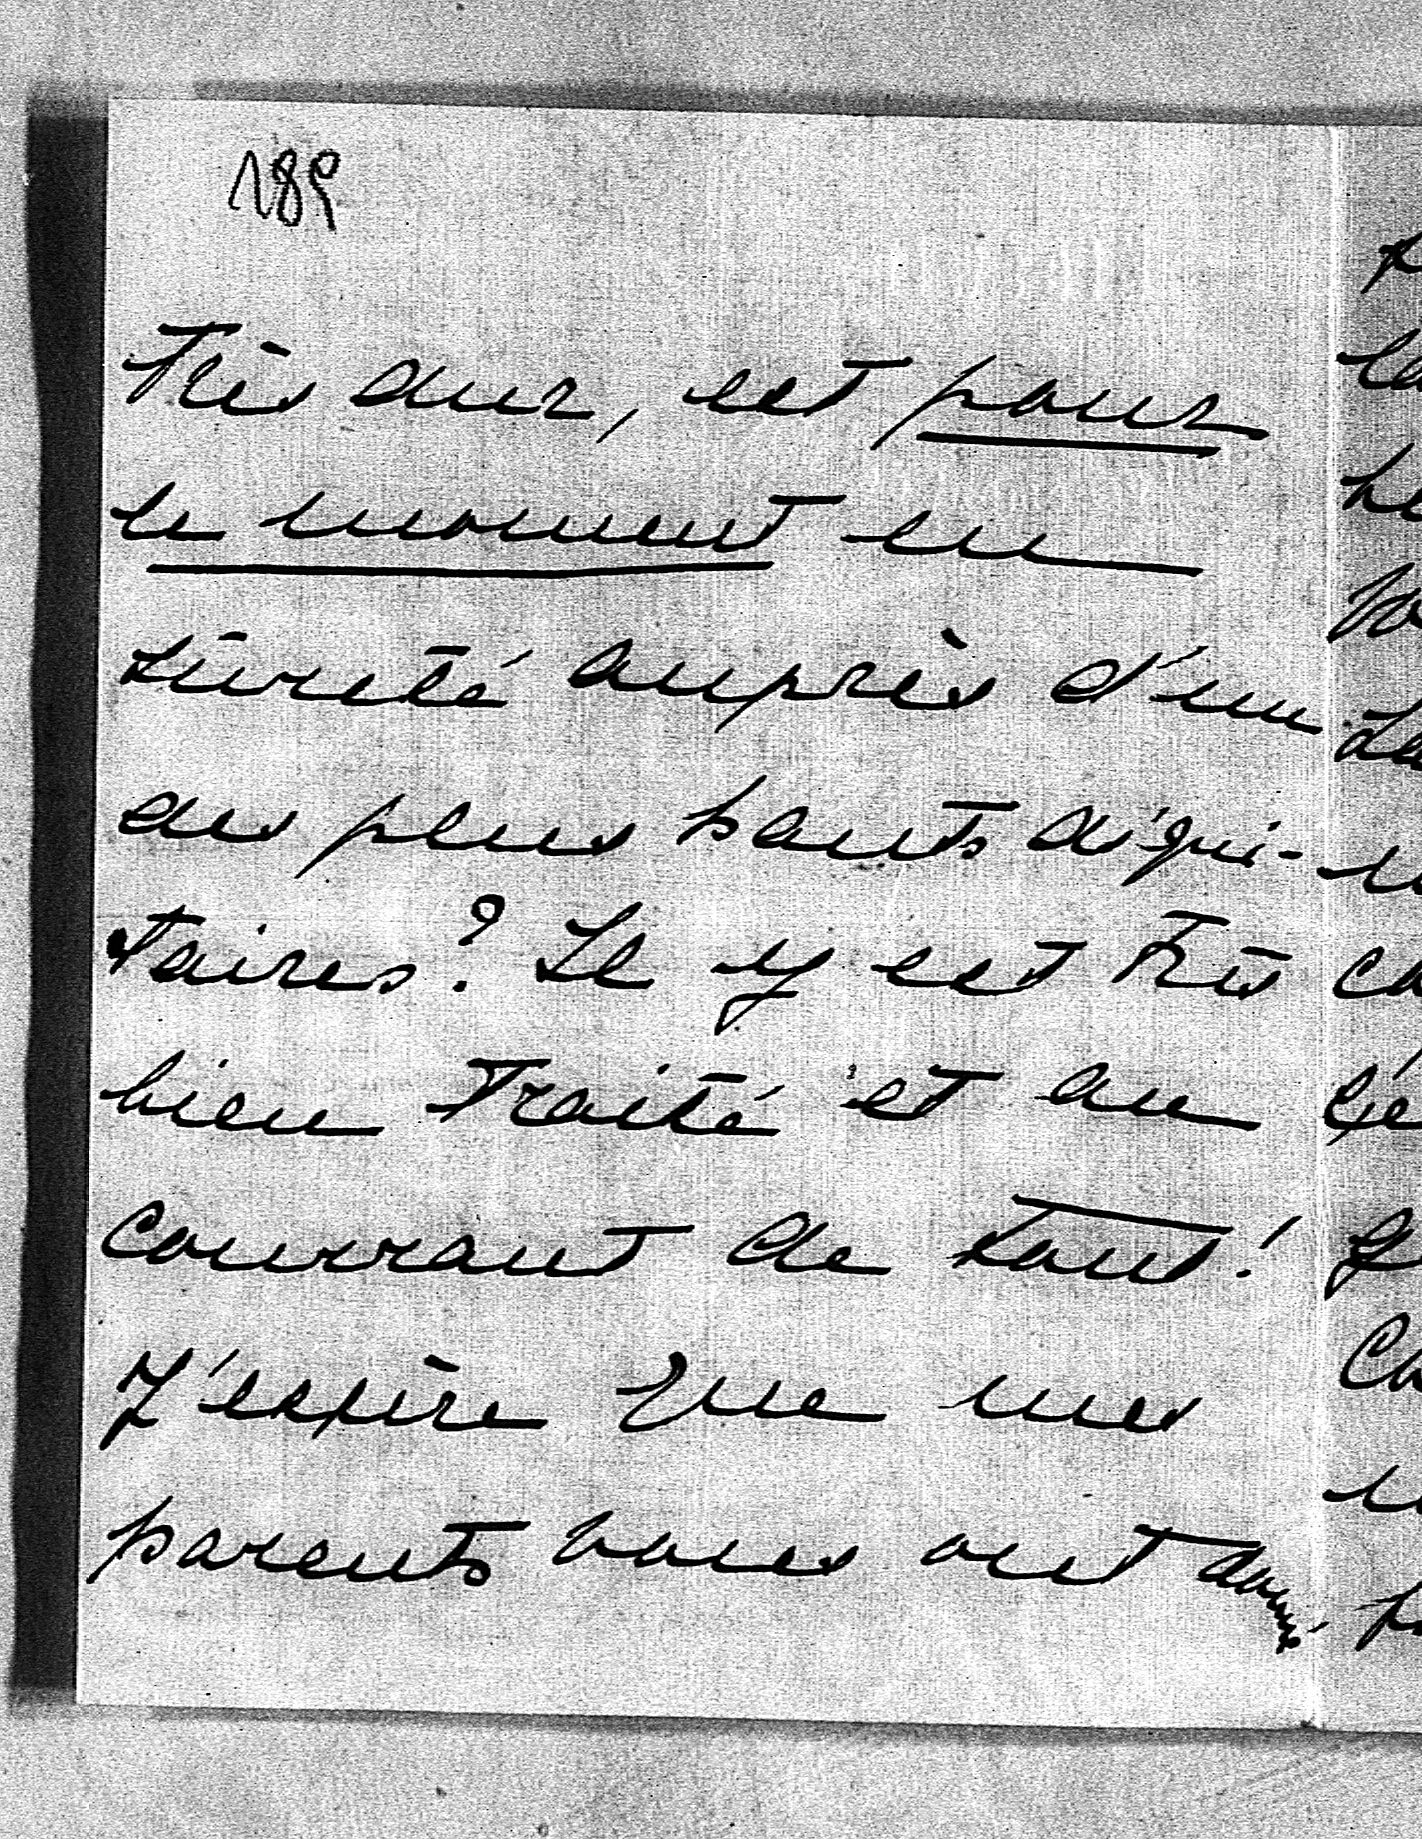 189
très dur, est pour
le moment en
sûreté auprès d'un
des plus hauts digni-
taires? Il y est très
bien traité et au
courrant de tout!
J'espère que mes
parents vous ont donné